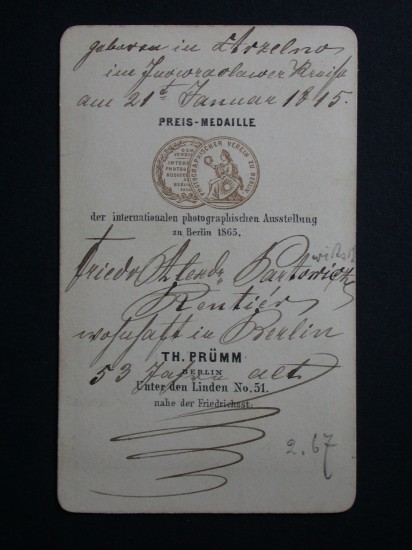 geboren in Strzelno
im Inowraclawer Kreise
am 21t Januar 1815.
PREIS-MEDAILLE
PHOTOGRAPHISCHER VEREIN ZU BERLIN
der internationalen photographischen Ausstellung
zu Berlin 1865.
Friedr
Rentier
wohnhaft in Berlin
TH. PRÜMM
BERLIN
53 Jahre alt
Unter den Linden No. 51.
nahe der Friedrichsst.
2.67